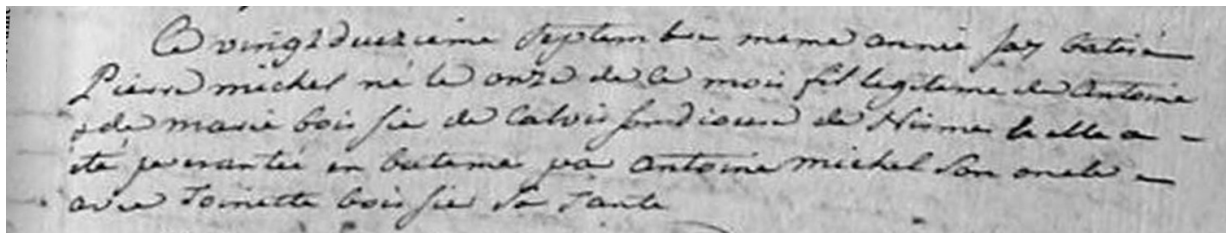 Ce vingt duezieme septembre meme année jay batisé
Pierre michel né le onze de ce mois fil legiteme de Antoine
& de marie boissie de Calvisson dioceze de Nisme le elle a
été presantée en bateme par Antoine michel son oncle
avec Toinette boissie sa tante